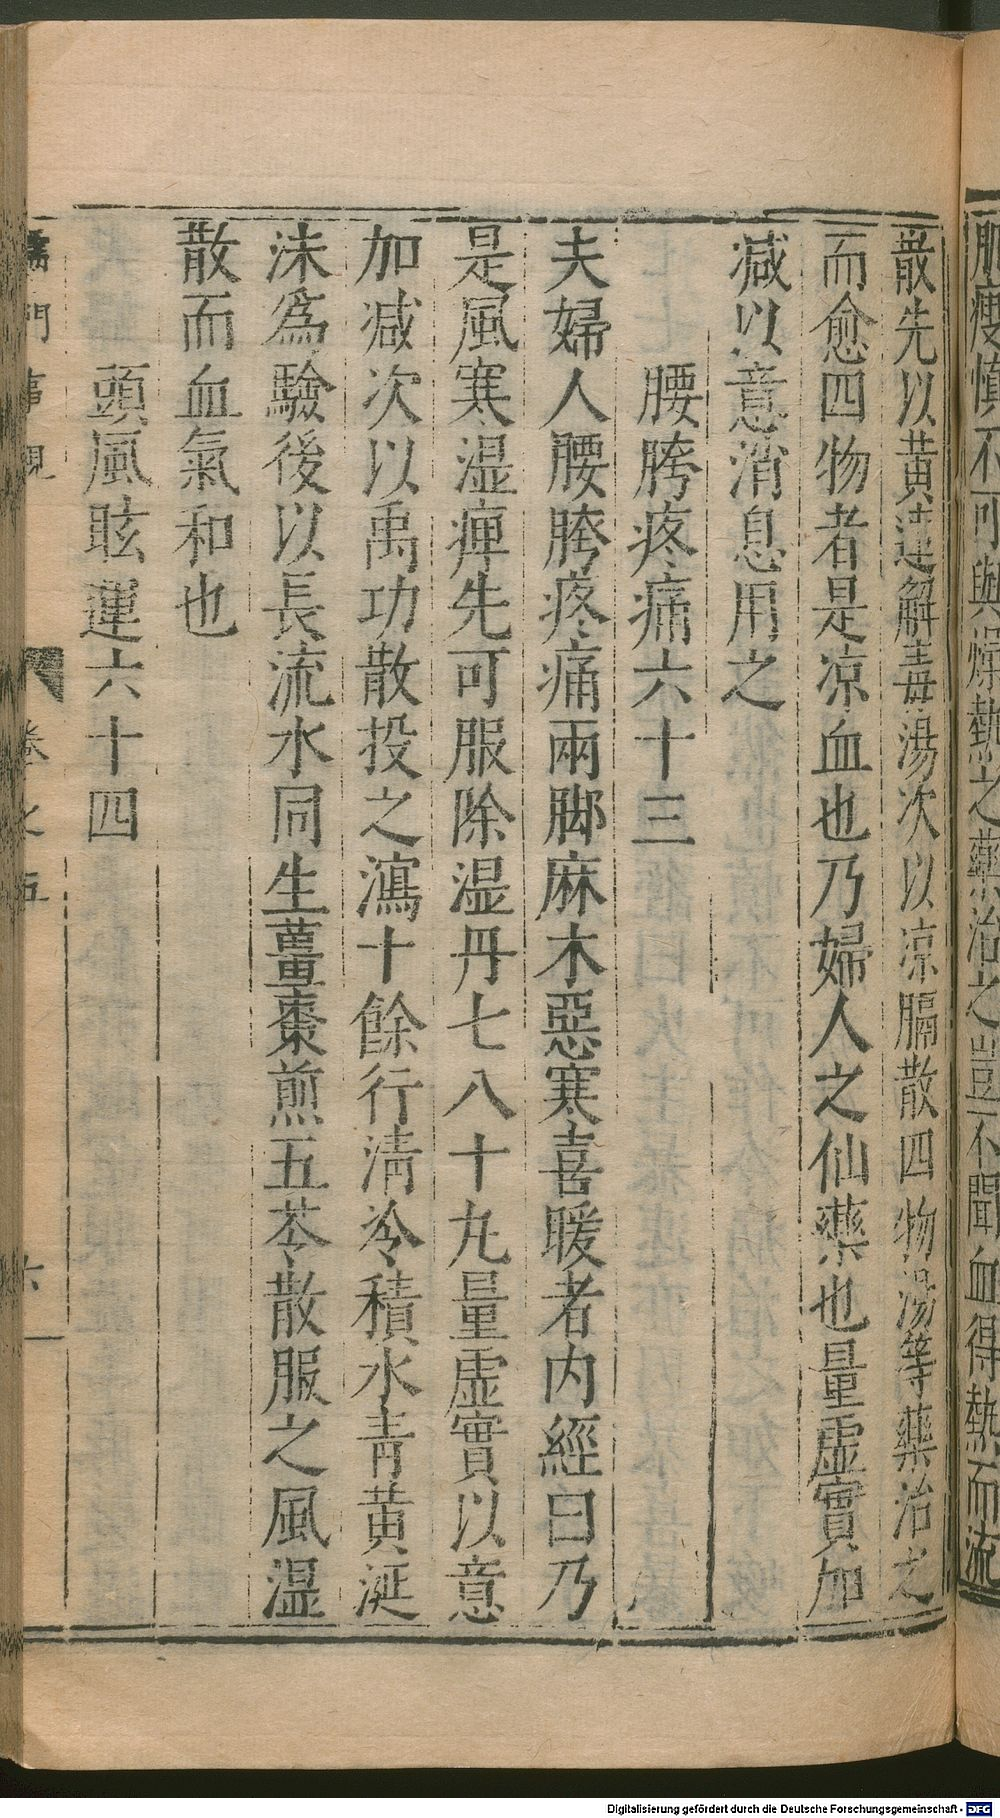 肌瘦慎不可與燥熱之藥治之豈不聞血得熱而流
散先以黄連解毒湯次以凉膈散四物湯等藥治之
而愈四物者是凉血也乃婦人之仙藥也量虚實加
减以意消息用之
腰胯疼痛六十三
夫婦人腰胯疼痛兩脚麻木惡寒喜暖者内經曰乃
是風寒湿痺先可服除湿丹七八十九量虚實以意
加减次以禹功散投之瀉十餘行清冷積水青黄涎
沫為驗後以長流水同生薑棗煎五苓散服之風湿
散而血氣和也
頭風眩運六十四
儒門事親 卷之五 六一
Digitalisierung gefördert durch die Deutsche Forschungsgemeinschaft - DFG